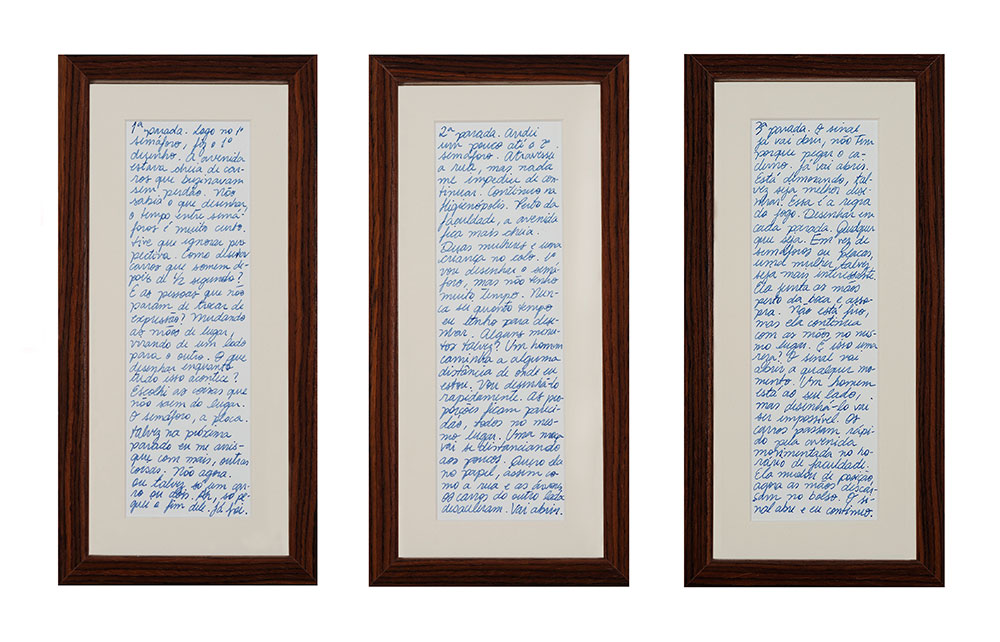 1ª parada. Logo no 1º
semáforo, fiz o 1º
desenho. A avenida
estava cheia de car-
ros que buzinavam
sem perdão. Não
sabia o que desenhar,
o tempo entre semá-
foros é muito curto.
Tive que ignorar pers
pectiva. Como
carros que somem de-
pois de ½ segundo?
E as pessoas que não
param de trocar de
expressão? Mudando
as mãos de lugar,
virando de um lado
para o outro. O que
desenhar enquanto
tudo isso acontece?
Escolhi as coisas que
não saem do lugar.
O semáforo, a placa.
Talvez na próxima
parada eu me arris-
que com mais, outras
coisas. Não agora.
Ou talvez só um car-
ro ou dois. Ah, só pe-
guei o fim dele. Já foi.
2ª parada. Andei
um pouco até o 2º
semáforo. Atravessei
a rua, mas nada
me impediu de con-
tinuar. Continuo na
Higienópolis. Perto da
faculdade, a avenida
fica mais cheia.
Duas mulheres e uma
criança no colo. 1º
vou desenhar o semá-
foro, mas não tenho
muito tempo. Nun-
ca sei quanto tempo
eu tenho para dese-
nhar. Alguns minu-
tos talvez? Um homem
caminha a alguma
distância de onde eu
estou. Vou desenhá-lo
rapidamente. As pro
porções ficam pareci-
das, todos no mes-
mo lugar. Uma moça
vai se distanciando
aos poucos. Quero da
no papel, assim co-
mo a rua e as árvores
os carros do outro lado
desaceleram. Vai abrir.
3ª parada. O sinal
já vai abrir, não tem
porque pegar o ca-
derno. Já vai abrir.
Está demorando, tal-
vez seja melhor dese-
nhar. Essa é a regra
do jogo. Desenhar em
cada parada. Qualquer
que seja. Em vez de
semáforos ou placas,
uma mulher talvez
seja mais interessante.
Ela junta as mãos
perto da boca e asso-
pra. Não está frio,
mas ela continua
com as mãos no mes-
mo lugar. É isso uma
reza? O sinal vai
abrir, a qualquer mo-
mento. Um homem
está ao seu lado,
mas desenhá-lo vai
ser impossível. Os
carros passam rápi-
do pela avenida
movimentada no ho-
rário de faculdade.
Ela mudou de posição,
agora as mãos descan-
sam no bolso. O si-
nal abre e eu continuo.